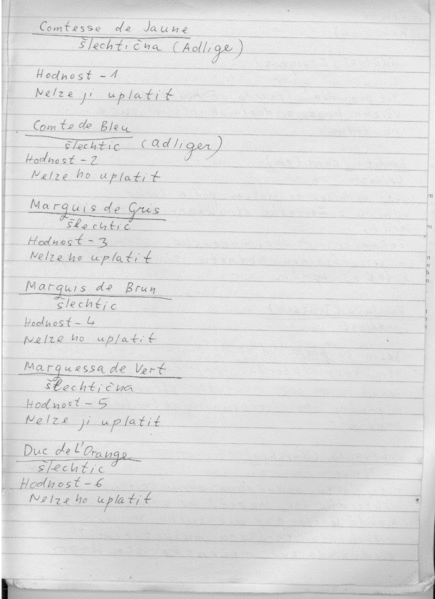 Comtesse de Jaune
šlechtična (Adlige)
Hodnost - 1
Nelze ji uplatit
Comte de Bleu
šlechtic (adliger)
Hodnost - 2
Nelze ho uplatit
Marquis de Gris
šlechtic
Hodnost - 3
Nelze ho uplatit
Marquis de Brun
šlechtic
Hodnost - 4
Nelze ho uplatit
Marquessa de Vert
šlechtična
Hodnost - 5
Nelze ji uplatit
Duc de L'Orange
šlechtic
Hodnost - 6
Nelze ho uplatit